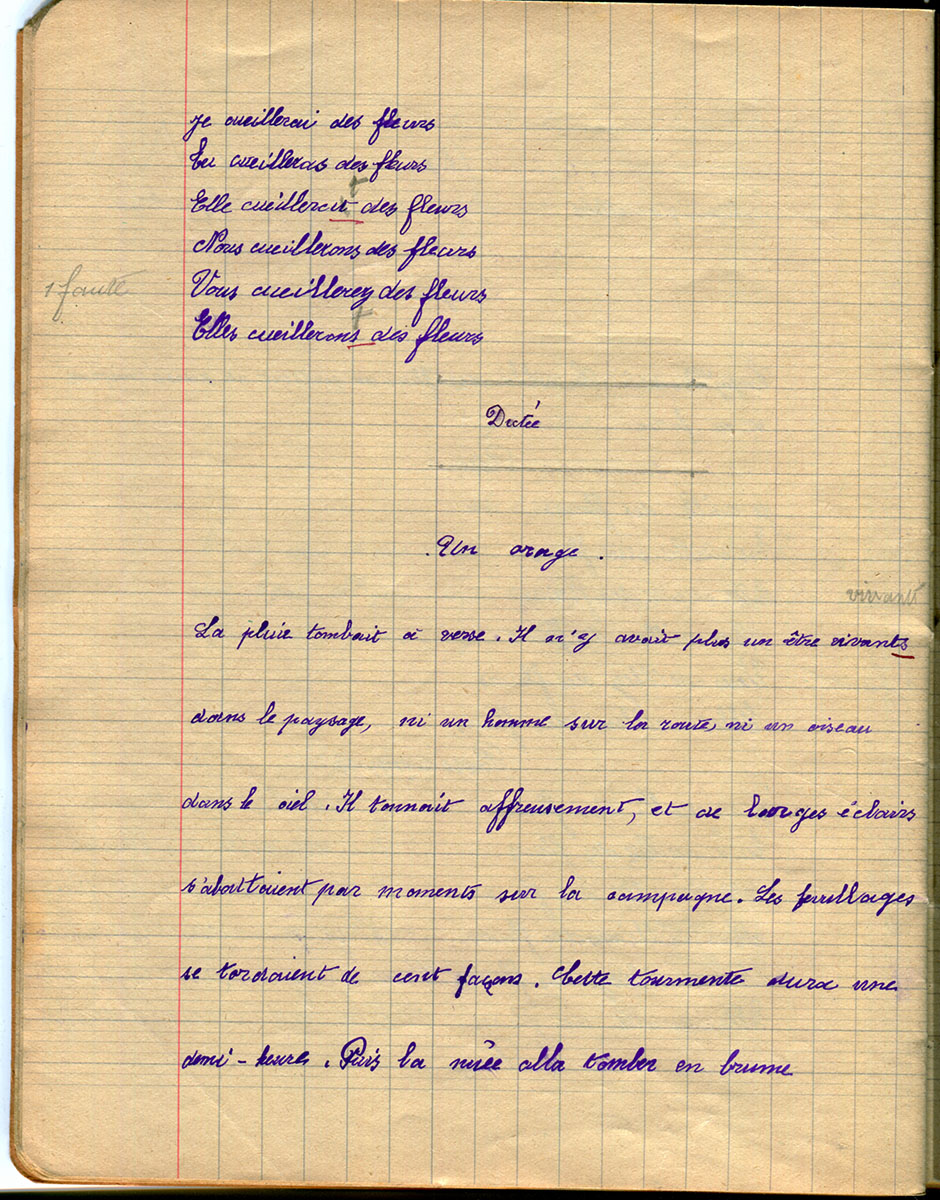 Je cueillerai des fleurs
Tu cueilleras des fleurs
t
Elle cueillerait des fleurs
Nous cueillerons des fleurs
1 faute
Vous cueillerez des fleurs
t
Elles cueillerons des fleurs
Dictée
Un orage.
vivant
La pluie tombait à verse. Il n'y avait plus un être vivants
dans le paysage, ni un homme sur la route, ni un oiseau
dans le ciel. Il tonnait affreusement, et de larges éclairs
s'abattaient par moments sur la campagne. Les feuillages
se tordaient de cent façons. Cette tourmente dura une
demi-heure. Puis la nuée alla tomber en brume